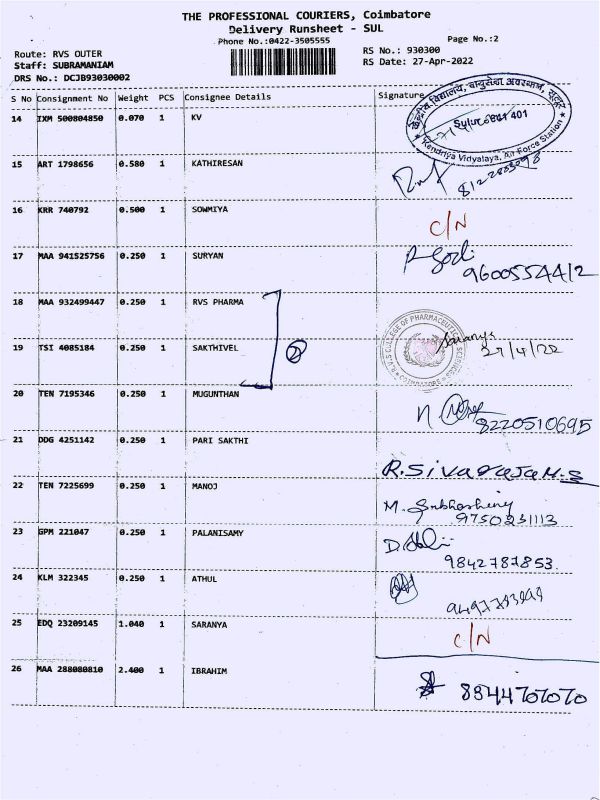 THE PROFESSIONAL COURIERS, Coimbatore
Delivery Runsheet - SUL
Phone No.:0422-3505555
Page No.:2
Route: RVS OUTER
RS No.: 930300
Staff: SUBRAMANIAM
RS Date: 27-Apr-2022
DRS No.: DCJB93030002
S No Consignment No Weight PCS Consignee Details Signature
14 IXM 500804850 0.070 1 KV
केन्द्रीय विद्यालय, वायुसेना अवस्थान, सूलूर
Kendriya Vidyalaya, Air Force Station
15 ART 1798656 0.580 1 KATHIRESAN
16 KRR 740792 0.500 1 SOWMIYA C/N
17 MAA 941525756 0.250 1 SURYAN
9600554412
18 MAA 932499447 0.250 1 RVS PHARMA
19 TSI 4085184 0.250 1 SAKTHIVEL
R.V.S COLLEGE OF PHARMACEUTICAL SCIENCES
COIMBATORE
Saranya
27/4/22
20 TEN 7195346 0.250 1 MUGUNTHAN
8220510695
21 DDG 4251142 0.250 1 PARI SAKTHI
R.Sivaraja M.S
22 TEN 7225699 0.250 1 MANOJ
M. Subhashiny
9750231113
23 GPM 221047 0.250 1 PALANISAMY
9842787853
24 KLM 322345 0.250 1 ATHUL
25 EDQ 23209145 1.040 1 SARANYA C/N
26 MAA 288080810 2.400 1 IBRAHIM
8844707070